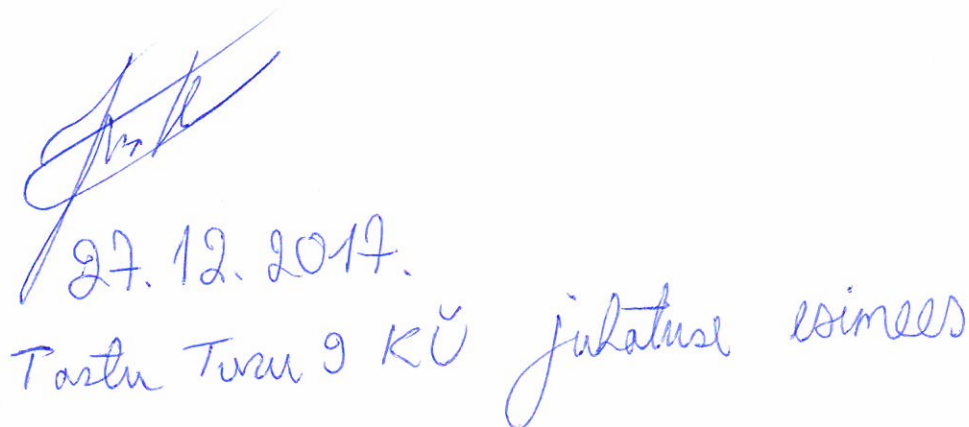 27.12.2017.
Tartu Turu 9 KÜ juhatuse esimees